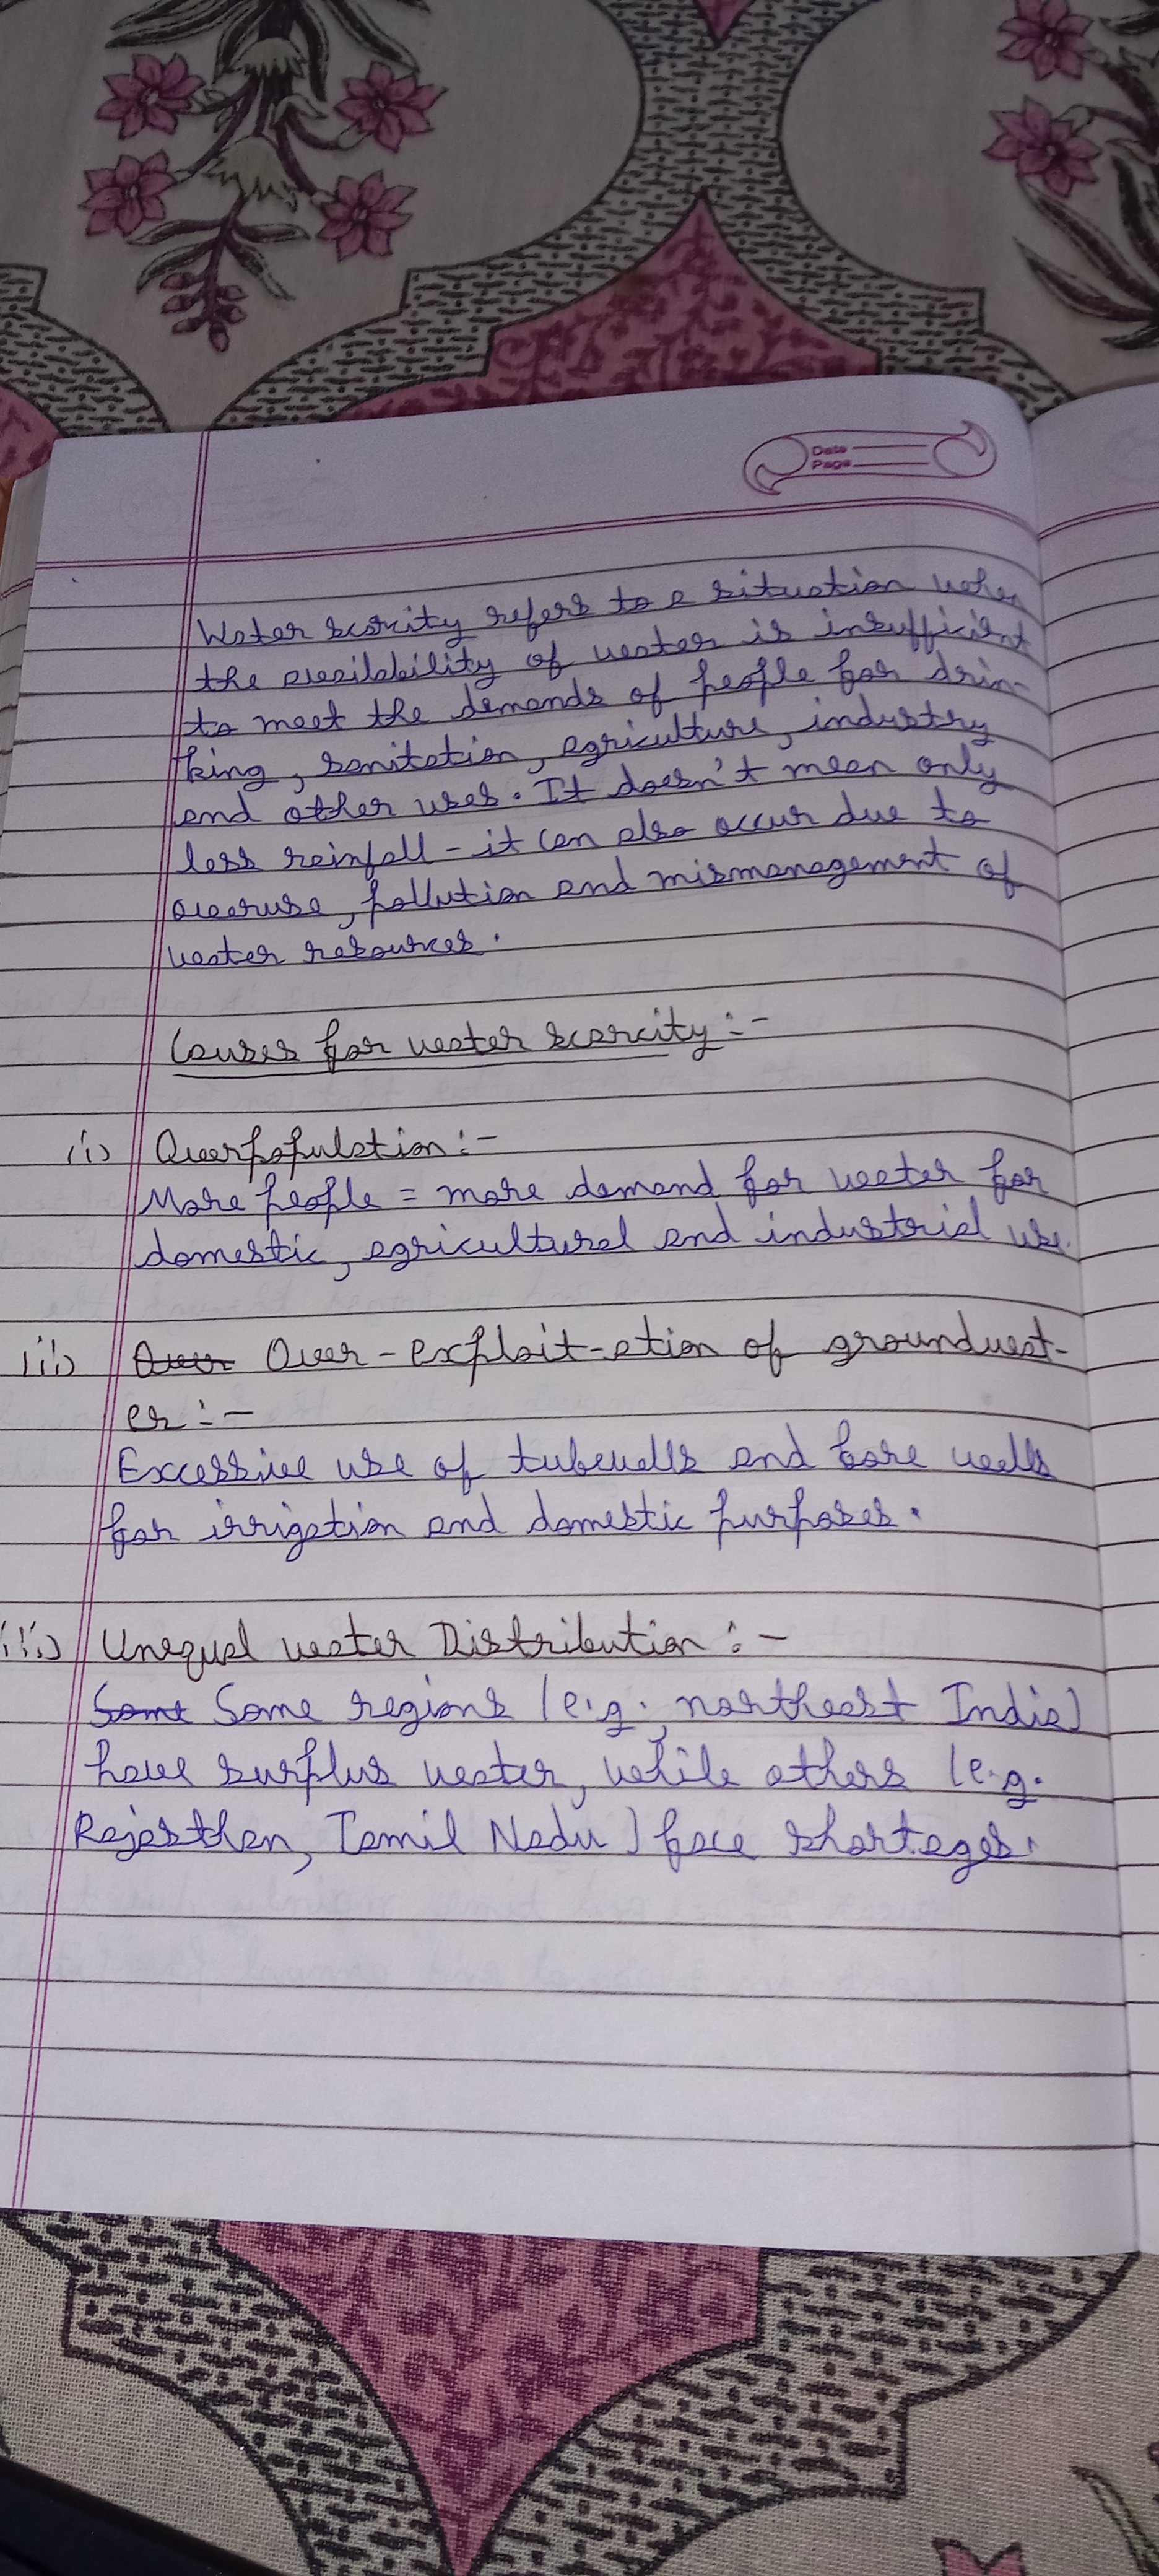 Date
Page
Water scarcity refers to a situation when
the availability of water is insufficient
to meet the demands of people for drin-
king, sanitation, agriculture, industry
and other uses. It doesn't mean only
less rainfall - it can also occur due to
overuse, pollution and mismanagement of
water resources.
Causes for water scarcity :-
(i) Overpopulation :-
More people = more demand for water for
domestic, agricultural and industrial use.
ii) Over Over - exploit-ation of groundwat-
er :-
Excessive use of tubewells and bore wells
for irrigation and domestic purposes.
iii) Unequal water Distribution : -
Somt Some regions (e.g., northeast India)
have surplus water, while others (e.g.
Rajasthan, Tamil Nadu) face shortages.